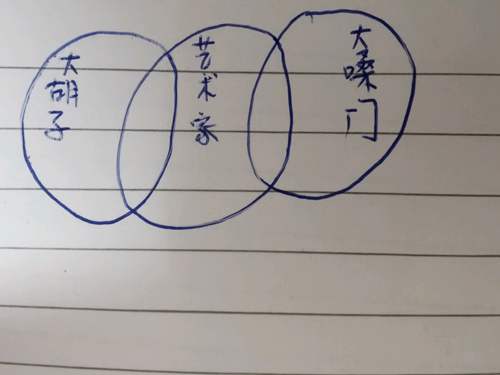 大胡子
艺术家
大嗓门